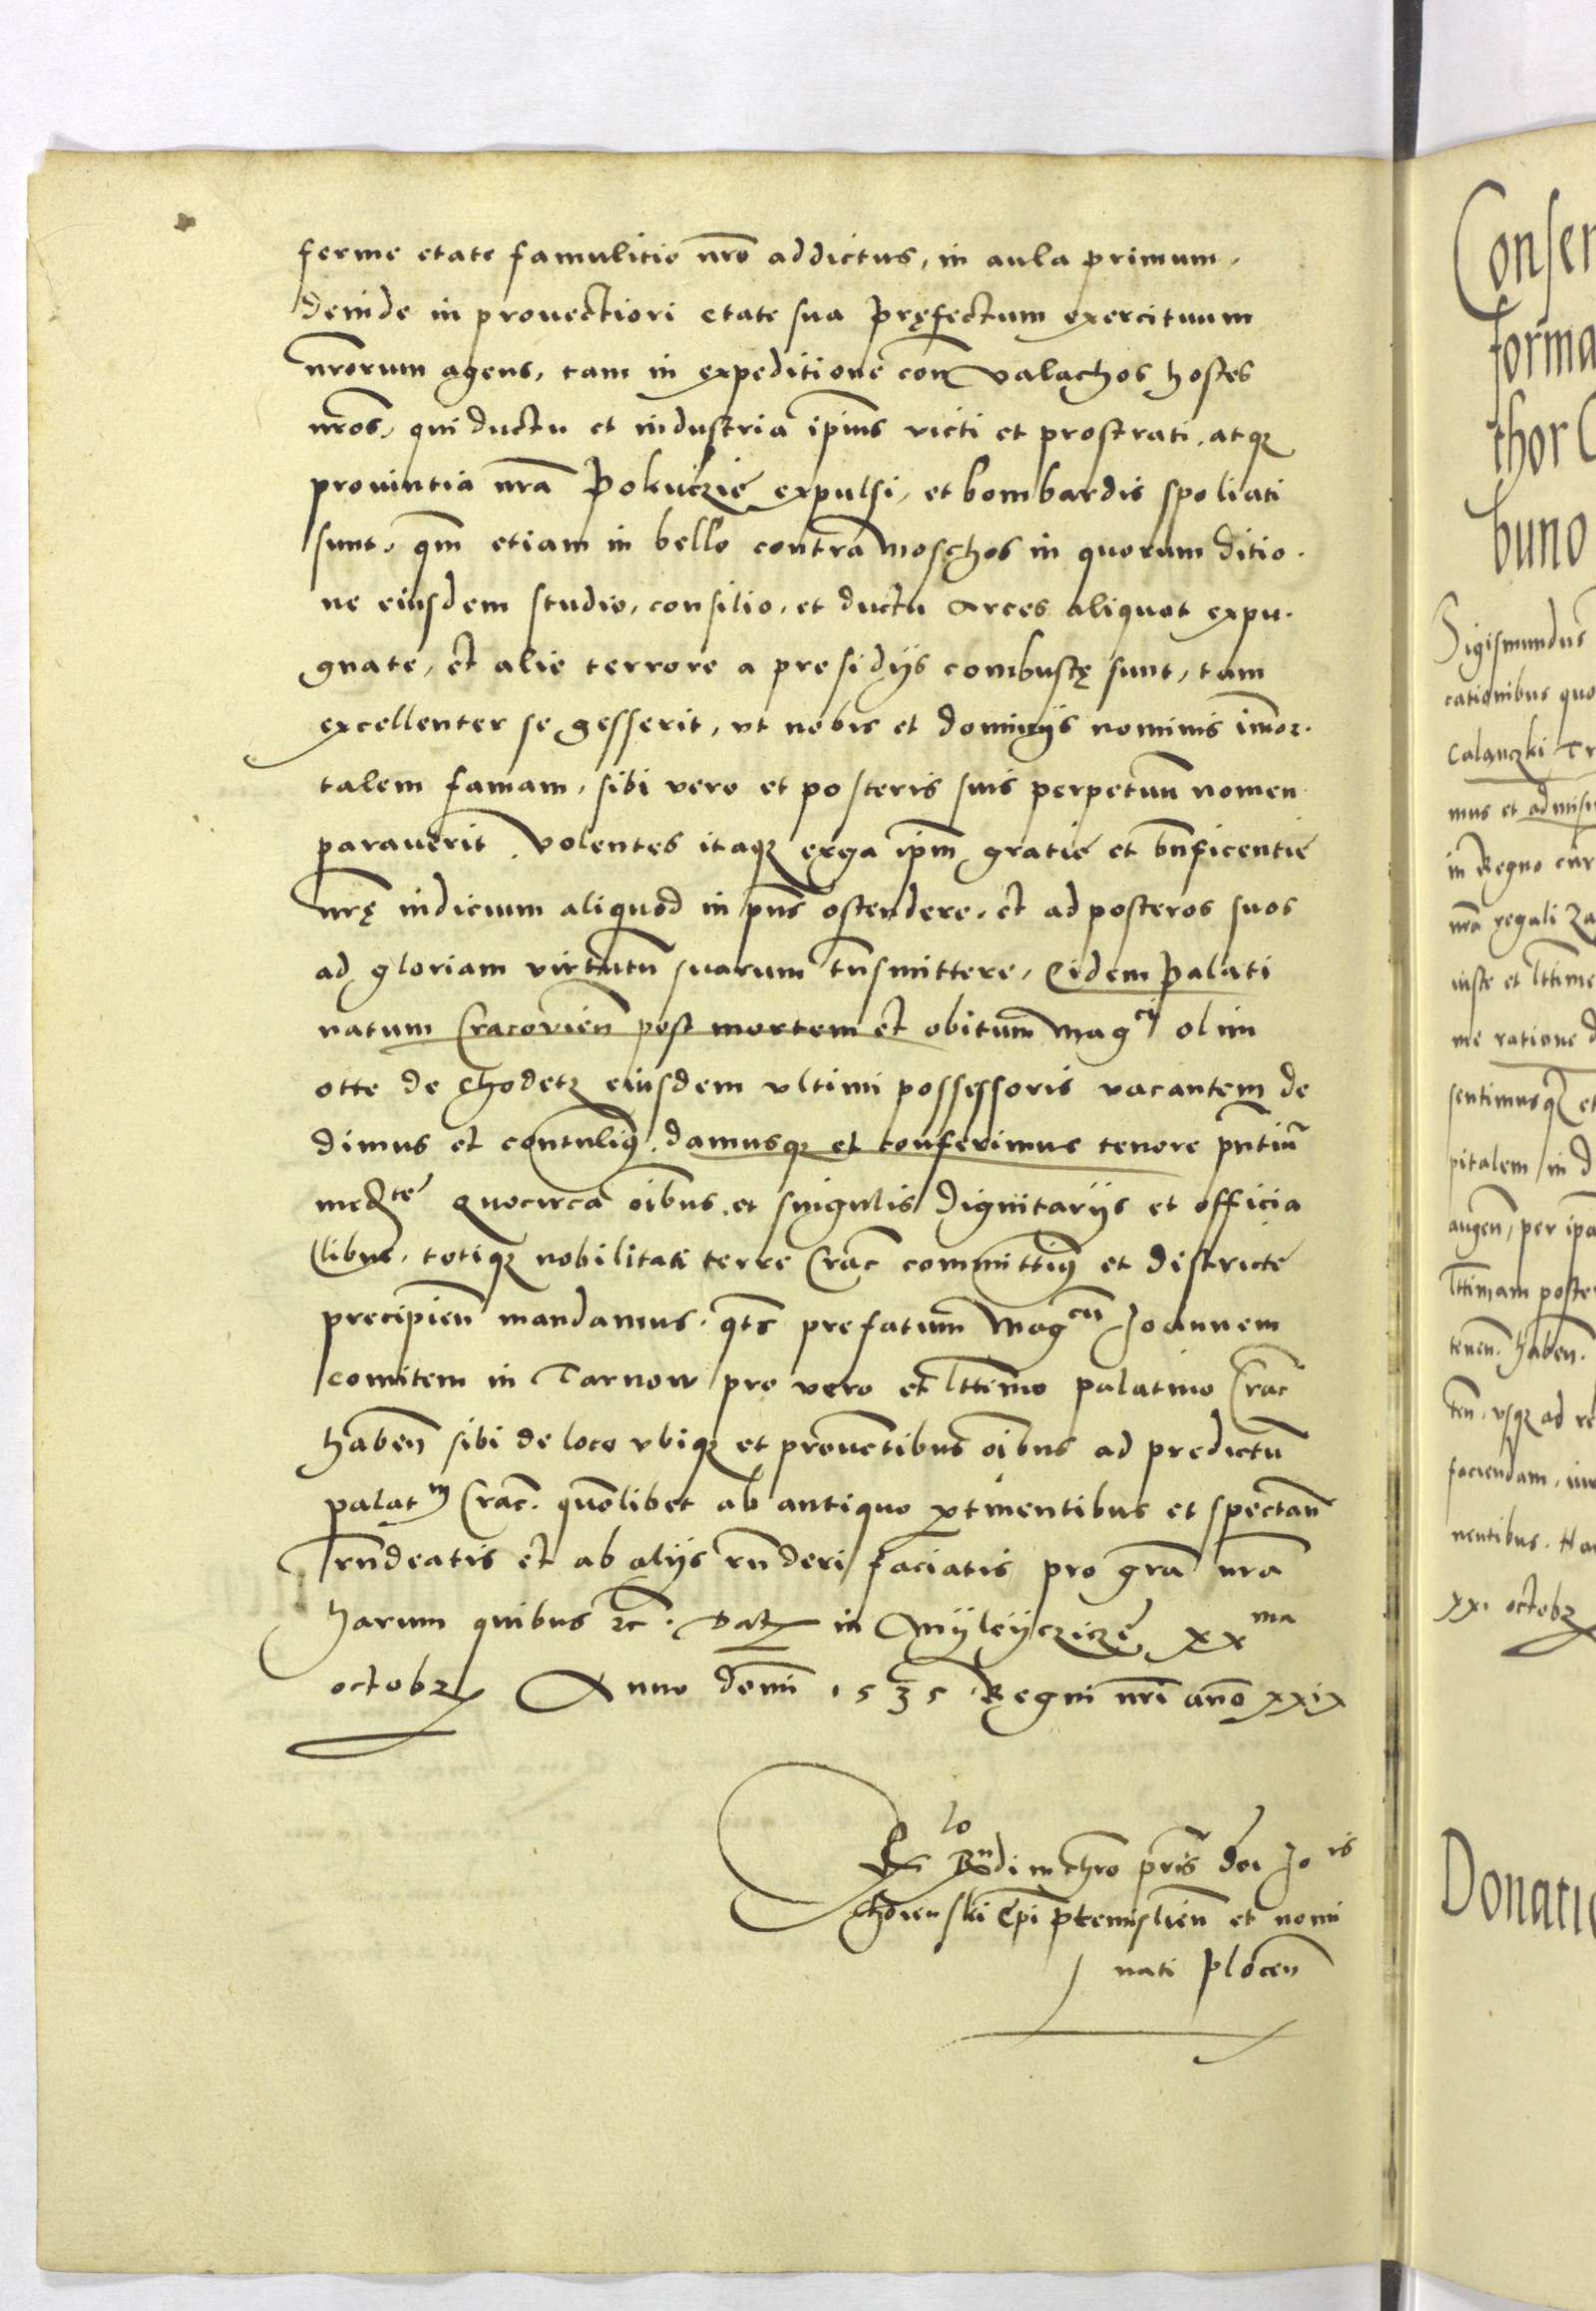 ferme etate famulitio nro addictus, in aula primum,
deinde in prouectiori etate sua pręfectum exercituum
nrorum agens, tam in expeditione con valachos hostes
nros, qui ductu et industria ipius victi et prostrati, atq
prouintia nra Pokuczie expulsi, et bombardis spoliati
sunt, qm etiam in bello contra moschos in quorum ditio.
ne eiusdem studio, consilio, et ductu arces aliquot expu.
gnate, et alie terrore a presidijs combustę sunt, tam
excellenter se gesserit, vt nobis et dominijs nominis imor.
talem famam, sibi vero et posteris suis perpetuu nomen
parauerit. Volentes itaq erga ipm gratie et bnficentie
nrę indicium aliquod in pns ostendere, et ad posteros suos
ad gloriam virtutu suarum tnsmittere, Eidem palati
natum Cracovien post mortem et obitum Magci olim
otte de Chodetz eiusdem vltimi possessoris vacantem de
dimus et contulim, damusq et conferimus tenore pntiu
medte Quocirca oibus et singulis dignitarijs et officia
libus, totiq nobilitati terre Crac committim et districte
precipien mandamus, qts prefatum Magcu Joannem
comitem in Tarnow pro vero et lttimo palatino Crac
haben sibi de loco vbiq et prouentibus oibus ad predictu
palatm Crac. quolibet ab antiquo ptinentibus et spectan
rndeatis et ab alijs rnderi faciatis pro gra nra
harum quibus etc. Dat in Myleyczicze xxma
octobr Anno domi 1535 Regni nri ano xxix
lo
Ex Rndi in chro pris doi Jois
Choienski Epi premislien et nomi
nati plocen
Conser
forma
thor C
buno
Sigismundus
cationibus quo
Calanczki Tr
mus et admisi
in Regno cur
nra regali za
iuste et lttime
me ratione d
sentimusq et
pitalem in d
augen, per ipa
lttimam poste
tenen. haben.
ten, vsq ad re
faciendam, iur
nentibus. Ha
xxi octobr
Donatio